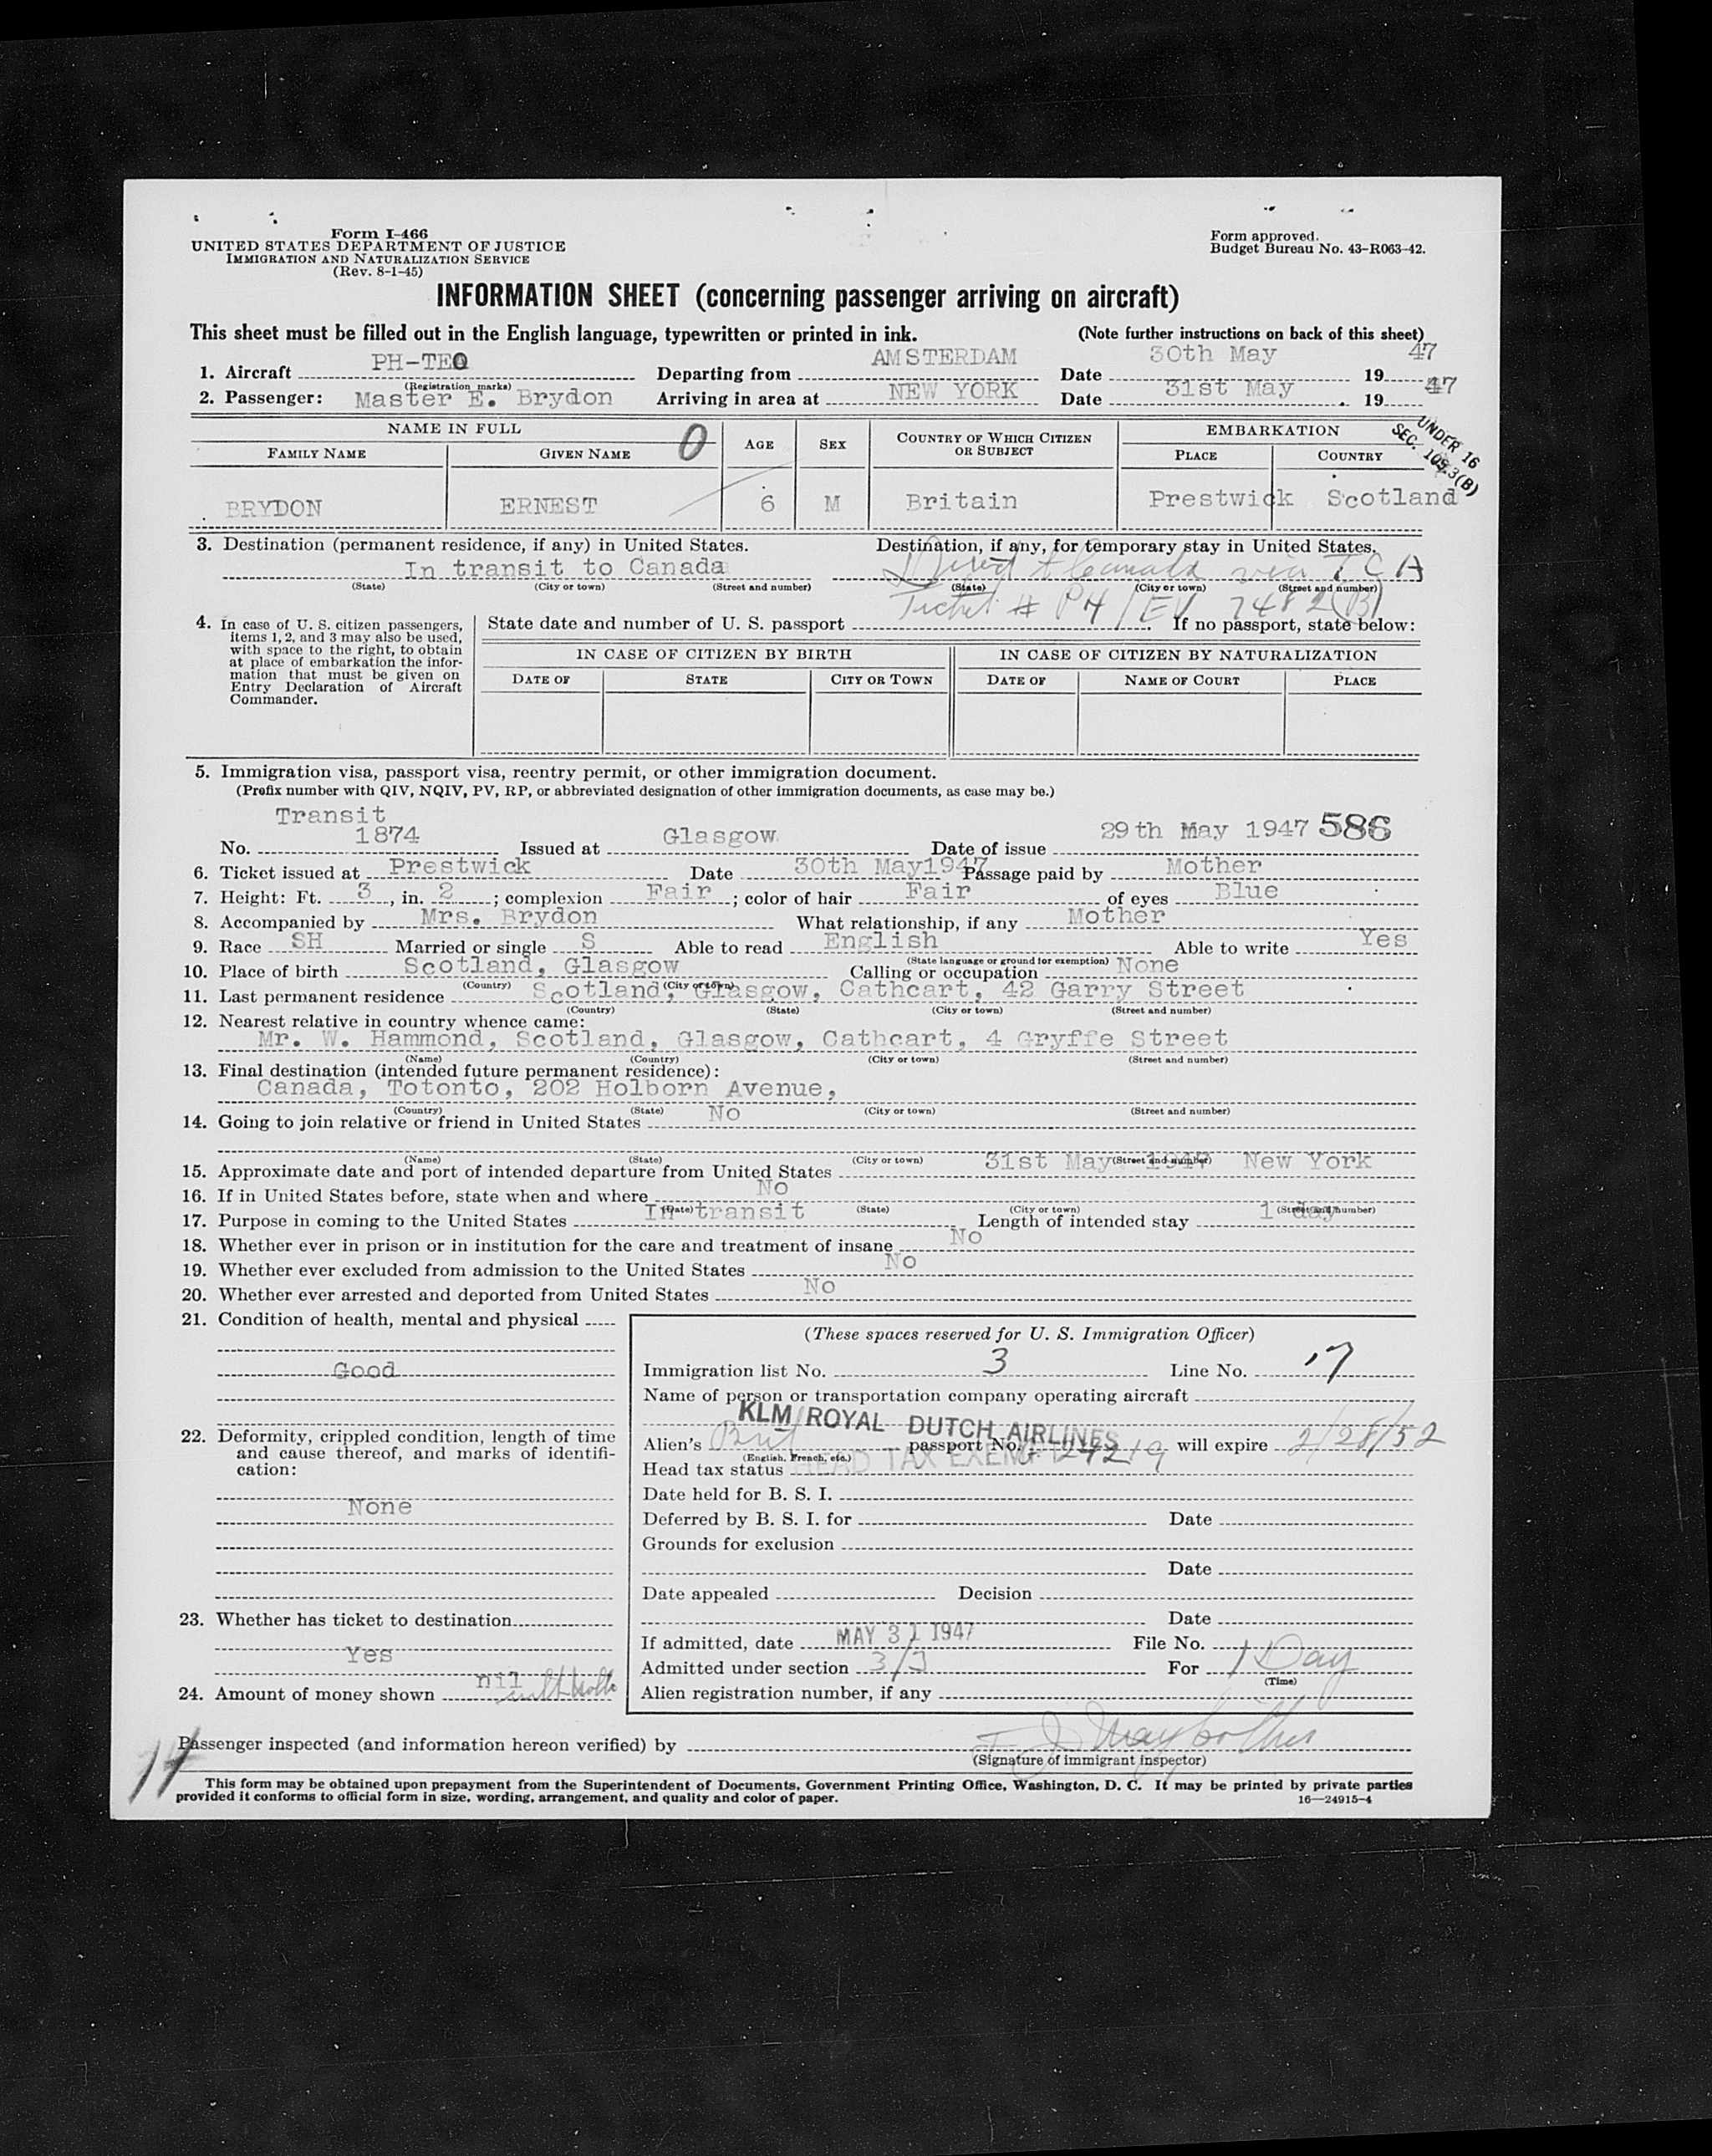 Form I-466
UNITED STATES DEPARTMENT OF JUSTICE
IMMIGRATION AND NATURALIZATION SERVICE
(Rev. 8-1-45)
Form approved.
Budget Bureau No. 43-R063-42.
INFORMATION SHEET (concerning passenger arriving on aircraft)
This sheet must be filled out in the English language, typewritten or printed in ink. (Note further instructions on back of this sheet)
1. Aircraft PH-TEO Departing from AMSTERDAM Date 30th May 19 47
(Registration marks)
2. Passenger: Master E. Brydon Arriving in area at NEW YORK Date 31st May . 19 47
UNDER 16
SEC. 109.3(B)
NAME IN FULL 0 AGE SEX COUNTRY OF WHICH CITIZEN OR SUBJECT EMBARKATION
FAMILY NAME GIVEN NAME PLACE COUNTRY
BRYDON ERNEST 6 M Britain Prestwick Scotland
3. Destination (permanent residence, if any) in United States. Destination, if any, for temporary stay in United States.
In transit to Canada Direct to Canada via TCA
(State) (City or town) (Street and number) (State) (City or town) (Street and number)
Ticket # PH/EV 7482(B)
4. In case of U. S. citizen passengers, items 1, 2, and 3 may also be used, with space to the right, to obtain at place of embarkation the information that must be given on Entry Declaration of Aircraft Commander.
State date and number of U. S. passport . If no passport, state below:
IN CASE OF CITIZEN BY BIRTH IN CASE OF CITIZEN BY NATURALIZATION
DATE OF STATE CITY OR TOWN DATE OF NAME OF COURT PLACE
5. Immigration visa, passport visa, reentry permit, or other immigration document.
(Prefix number with QIV, NQIV, PV, RP, or abbreviated designation of other immigration documents, as case may be.)
Transit
No. 1874 Issued at Glasgow. Date of issue 29th May 1947 586
6. Ticket issued at Prestwick Date 30th May1947 Passage paid by Mother
7. Height: Ft. 3, in. 2; complexion Fair; color of hair Fair of eyes Blue
8. Accompanied by Mrs. Brydon What relationship, if any Mother
9. Race SH Married or single S Able to read English Able to write Yes
(State language or ground for exemption)
10. Place of birth Scotland, Glasgow Calling or occupation None
(Country) (City or town)
11. Last permanent residence Scotland, Glasgow, Cathcart, 42 Garry Street
(Country) (State) (City or town) (Street and number)
12. Nearest relative in country whence came:
Mr. W. Hammond, Scotland, Glasgow, Cathcart, 4 Gryffe Street
(Name) (Country) (City or town) (Street and number)
13. Final destination (intended future permanent residence):
Canada, Totonto, 202 Holborn Avenue,
(Country) (State) (City or town) (Street and number)
14. Going to join relative or friend in United States No
(Name) (State) (City or town) (Street and number)
15. Approximate date and port of intended departure from United States 31st May 1947 New York
16. If in United States before, state when and where No
(Date) (State) (City or town) (Street and number)
17. Purpose in coming to the United States In transit Length of intended stay 1 day
18. Whether ever in prison or in institution for the care and treatment of insane No
19. Whether ever excluded from admission to the United States No
20. Whether ever arrested and deported from United States No
21. Condition of health, mental and physical
Good
22. Deformity, crippled condition, length of time and cause thereof, and marks of identification:
None
23. Whether has ticket to destination
Yes
24. Amount of money shown nil
(These spaces reserved for U. S. Immigration Officer)
Immigration list No. 3 Line No. 17
Name of person or transportation company operating aircraft
KLM/ROYAL DUTCH AIRLINES
Alien's Brit passport No. 27219 will expire 2/28/52
(English, French, etc.)
Head tax status HEAD TAX EXEMPT
Date held for B. S. I.
Deferred by B. S. I. for Date
Grounds for exclusion
Date
Date appealed Decision
Date
If admitted, date MAY 31 1947 File No.
Admitted under section 3/3 For 1 Day
(Time)
Alien registration number, if any
Passenger inspected (and information hereon verified) by
(Signature of immigrant inspector)
This form may be obtained upon prepayment from the Superintendent of Documents, Government Printing Office, Washington, D. C. It may be printed by private parties
provided it conforms to official form in size, wording, arrangement, and quality and color of paper. 16—24915-4